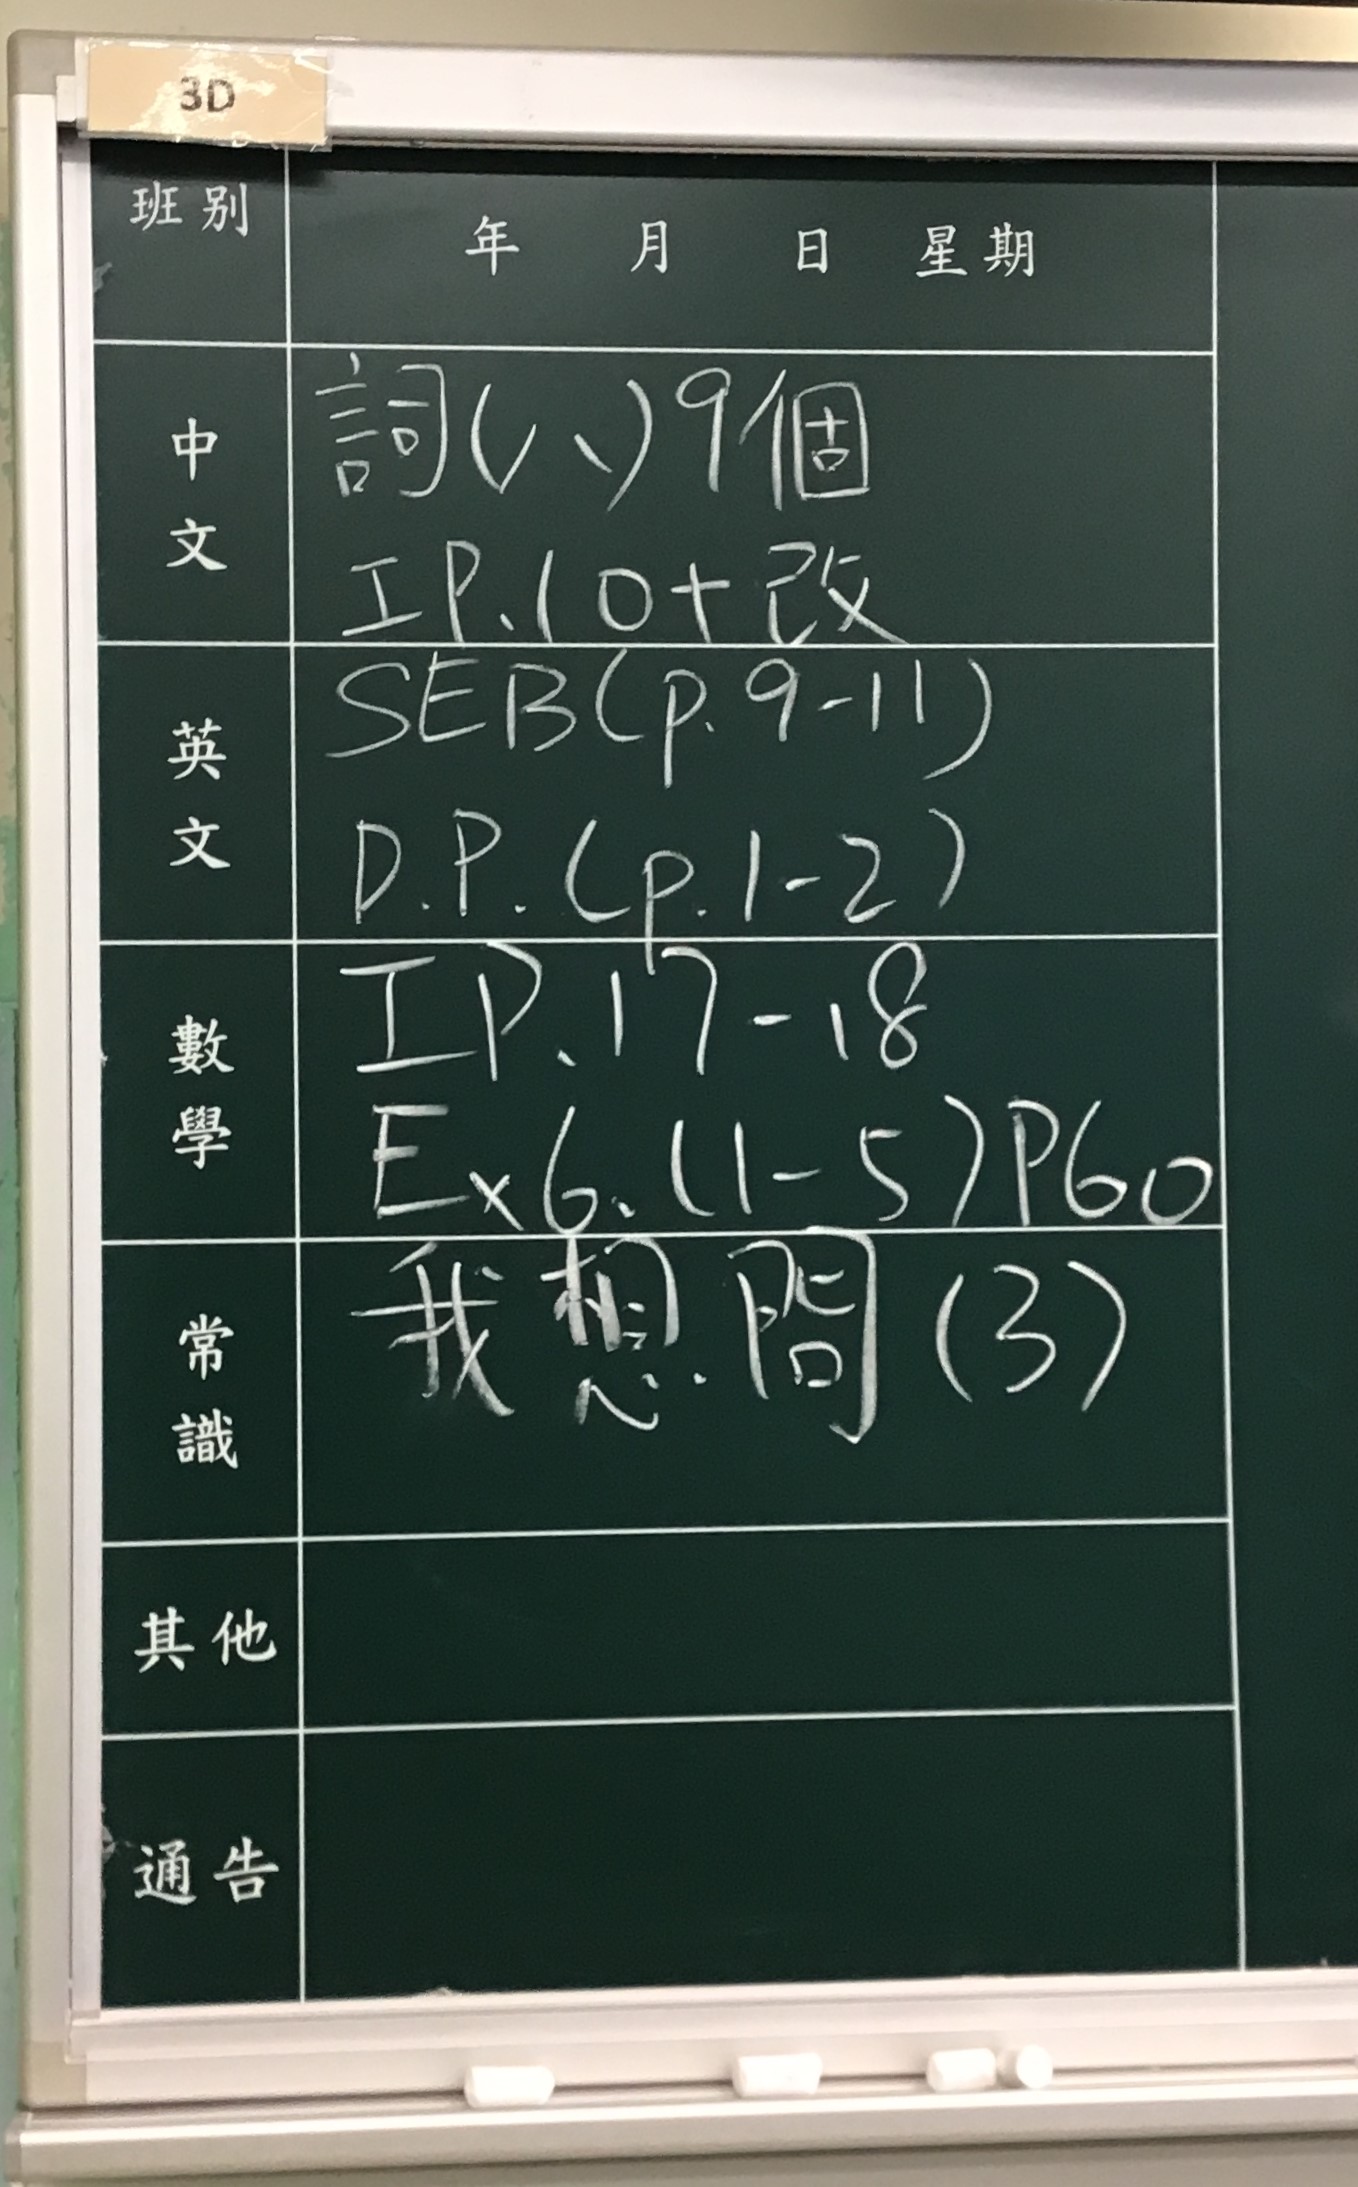 3D
班別
年 月 日 星期
中文
詞(八)9個
I P.10+改
英文
SEB(p.9-11)
D.P.(p.1-2)
數學
I P.17-18
Ex6.(1-5)P60
常識
我想.問(3)
其他
通告